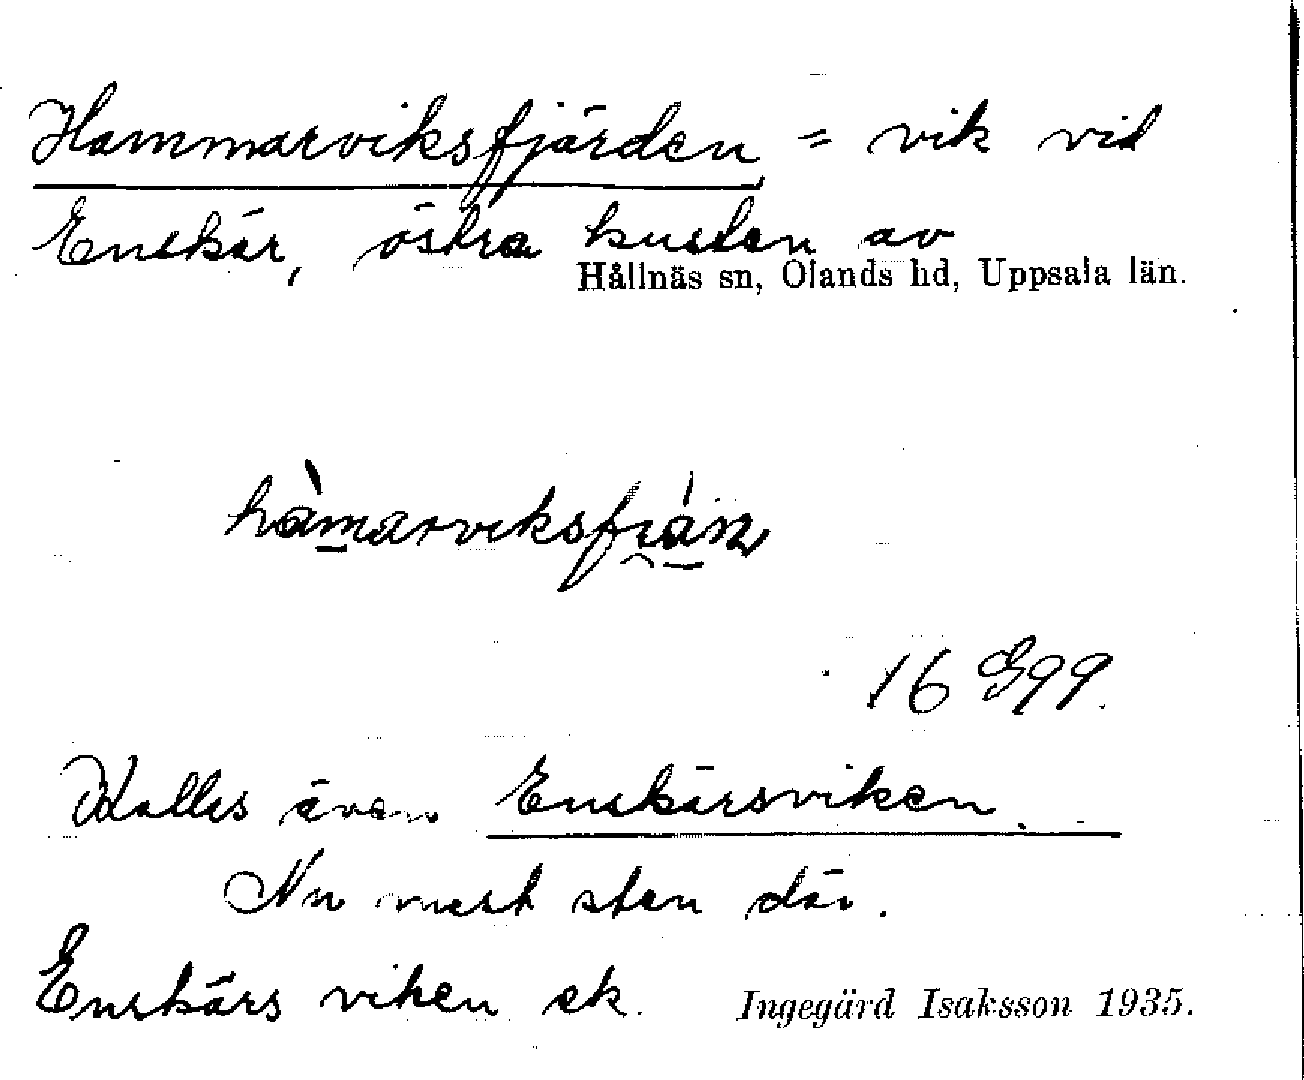 Hammarviksfjärden = vik vid
Enskär, östra kusten av
Hållnäs sn, Olands hd, Uppsala län.
hàmarviksfiá̈n
16 G99.
Kallas även Enskärsviken.
Nu mest sten där.
Enskärs viken ek. Ingegärd Isaksson 1935.